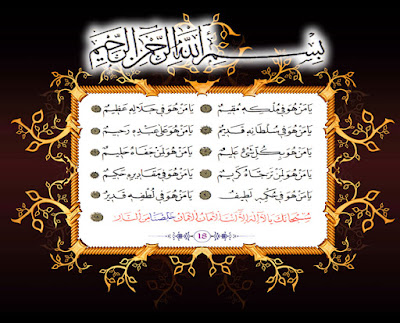 بِسْمِ اللهِ الرَّحْمٰنِ الرَّحِيمِ
يَا مَنْ هُوَ فِي مُلْكِهِ مُقِيمٌ يَا مَنْ هُوَ فِي جَلَالِهِ عَظِيمٌ
يَا مَنْ هُوَ فِي سُلْطَانِهِ قَدِيمٌ يَا مَنْ هُوَ عَلَى عَبْدِهِ رَحِيمٌ
يَا مَنْ هُوَ بِكُلِّ شَيْءٍ عَلِيمٌ يَا مَنْ هُوَ لِمَنْ جَفَاهُ حَلِيمٌ
يَا مَنْ هُوَ لِمَنْ رَجَاهُ كَرِيمٌ يَا مَنْ هُوَ فِي مَقَادِيرِهِ حَكِيمٌ
يَا مَنْ هُوَ فِي حُكْمِهِ لَطِيفٌ يَا مَنْ هُوَ فِي لُطْفِهِ قَدِيرٌ
سُبْحَانَكَ يَا لَا إِلَهَ إِلَّا أَنْتَ الْأَمَانُ الْأَمَانُ خَلِّصْنَا مِنَ النَّارِ
18